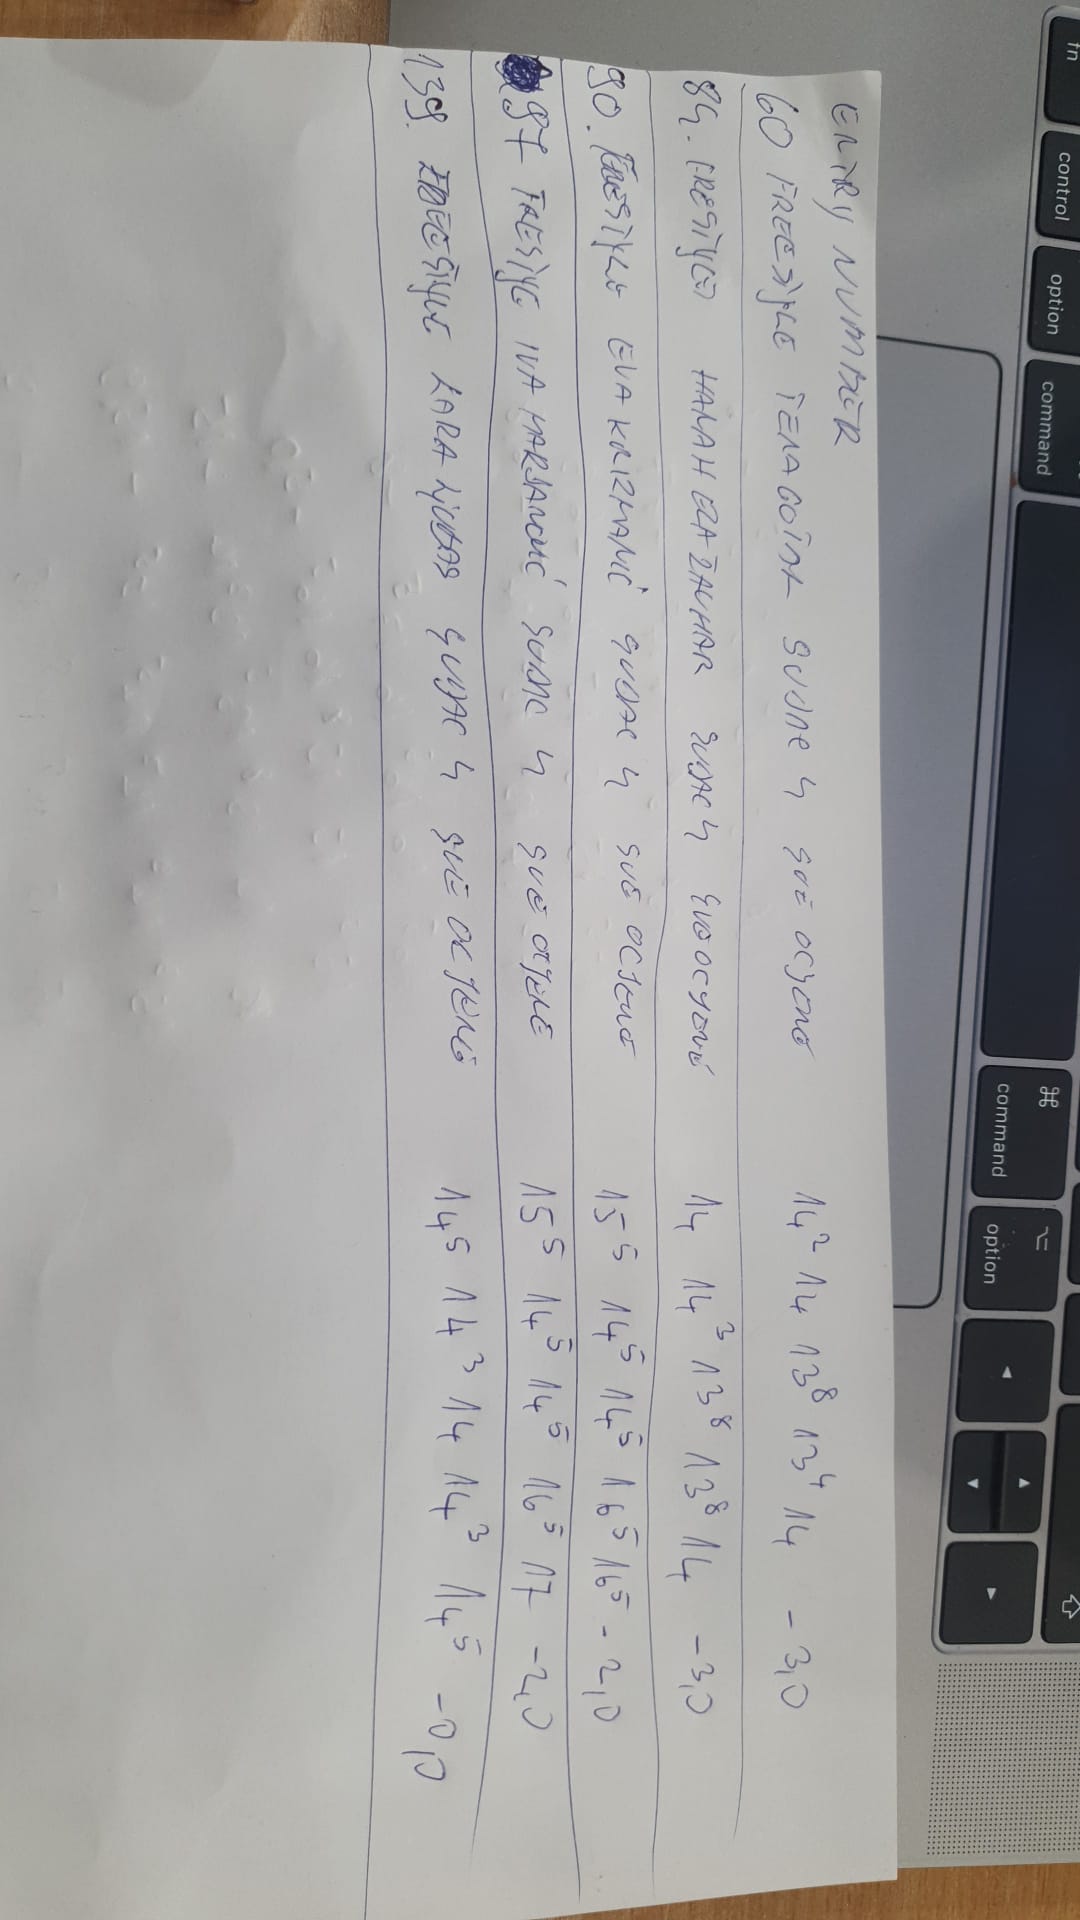 fn control option command ⌘ command ⌥ option
ENTRY NUMBER
60 FREESTYLE TENA GOTAL SUDAC 4 SVE OCJENE 14² 14 13⁸ 13⁴ 14 - 3,0
84. FRESTYLE HANAH EZA ZAUHAR SUDAC 4 SVE OCJENE 14 14³ 13⁸ 13⁸ 14 - 3,0
90. FRESTYLE EVA KRIZMANIĆ SUDAC 4 SVE OCJENE 15⁵ 14⁵ 14⁵ 16⁵ 16⁵ - 2,0
97 FRESTYLE IVA MARJANOVIĆ SUDAC 4 SVE OCJENE 15⁵ 14⁵ 14⁵ 16⁵ 17 - 2,0
139. FREESTYLE LARA LJUBAS SUDAC 4 SVE OCJENE 14⁵ 14³ 14 14³ 14⁵ - 0,0